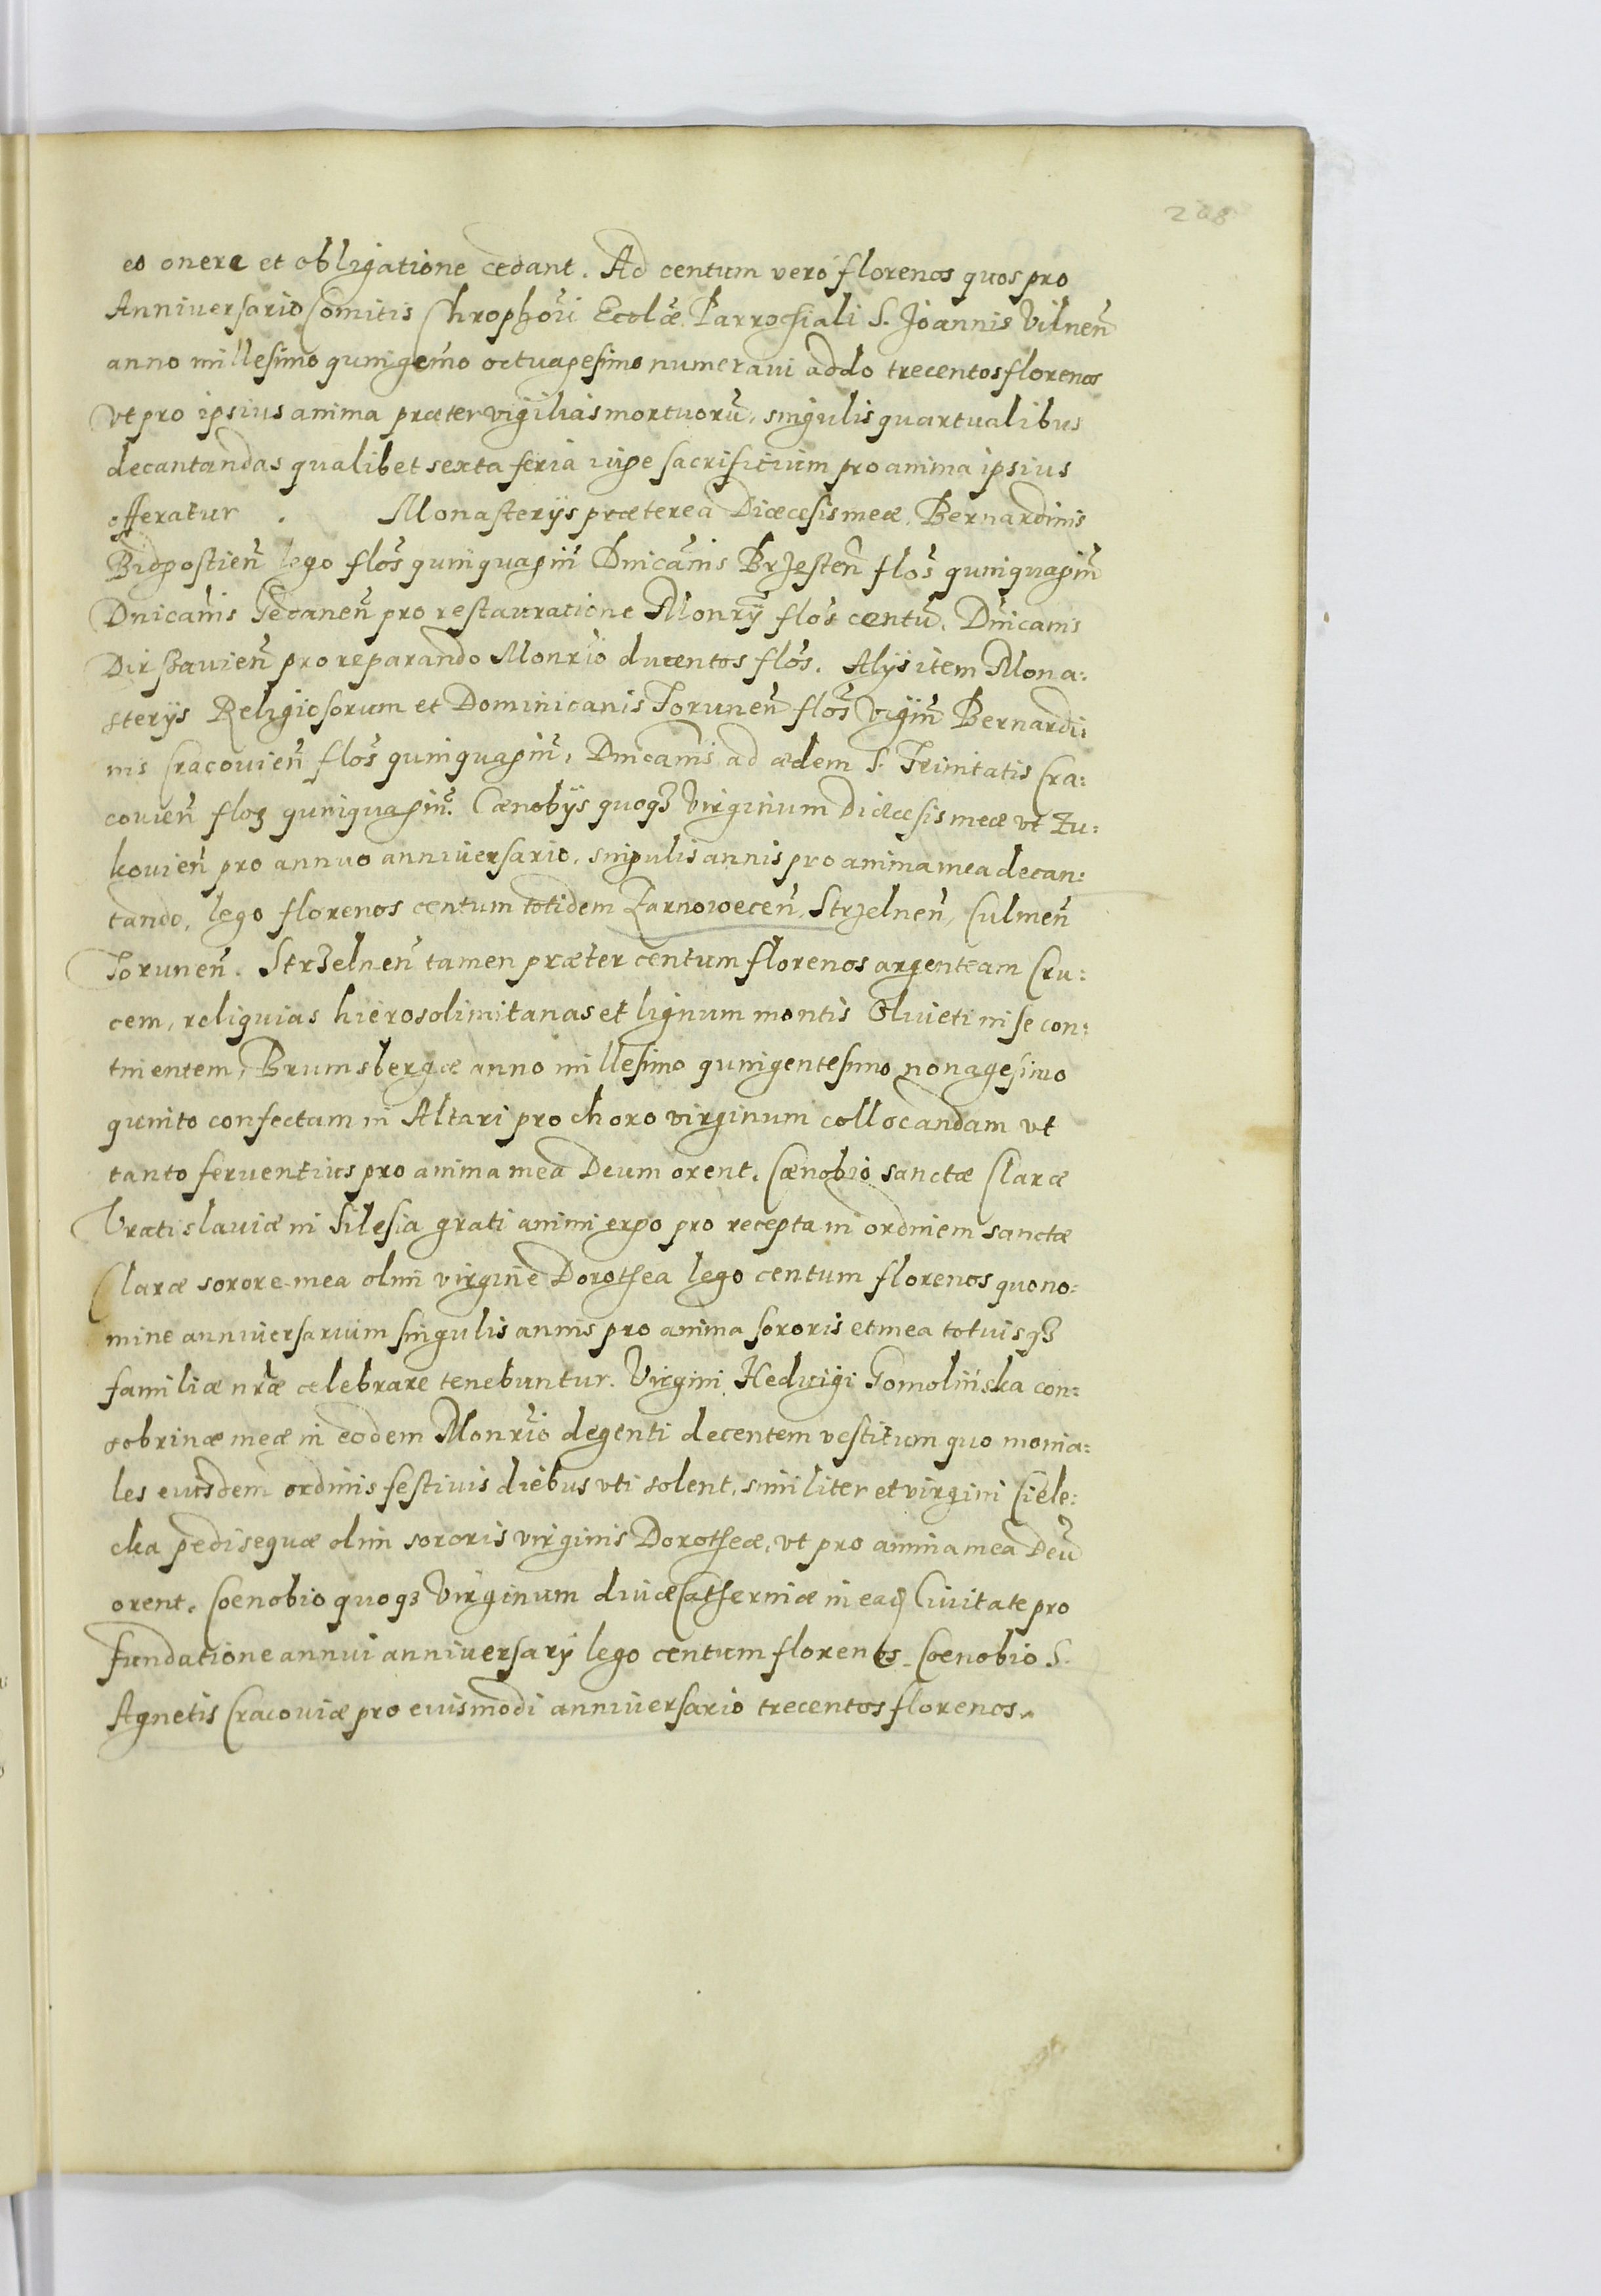 208
eo onere et obligatione cedant. Ad centum vero florenos quos pro
Anniuersario Comitis Chrophori Ecclæ Parrochiali S. Joannis Vilnen̄
anno millesimo quingemo octuagesimo numeraui addo trecentos florenos
vt pro ipsius anima præter vigilias mortuorū, singulis quartualibus
decantandas qualibet sexta feria iuge sacrificium pro anima ipsius
offeratur. Monasterijs præterea Diœcesis meæ, Bernardinis
Bidgostien̄ lego flos̄ quinquagin̄ Dnicanis Brzesten̄ flos̄ quinquagin̄
Dnicanis Gedanen̄ pro restauratione Monrÿ flos̄ centū, Dnicanis
Dirßauien̄ pro reparando Monrio ducentos flos̄. Alijs item Mona:
sterijs Religiosorum et Dominicanis Torunen̄ flos̄ vigin̄ Bernardi:
nis Cracouien̄ flos̄ quinquagin̄, Dnicanis ad ædem S. Trinitatis Cra:
couien̄ floz quinquagin̄. Cænobijs quoqz Virginum Diœcesis meæ vt Zu:
kouien̄ pro annuo anniuersario, singulis annis pro anima mea decan:
tando, lego florenos centum totidem Zarnowecen̄, Strzelnen̄, Culmen̄
Torunen̄. Strzelnen̄ tamen præter centum florenos argenteam Cru:
cem, reliquias hierosolimitanas et lignum montis Oliueti in se con:
tinentem, Brumsbergæ anno millesimo quingentesimo nonagesimo
quinto confectam in Altari pro choro virginum collocandam vt
tanto feruentius pro anima mea Deum orent. Cænobio sanctæ Claræ
Vratislauiæ in Silesia grati animi ergo pro recepta in ordinem sanctæ
Claræ sorore mea olim virgine Dorothea lego centum florenos quo no:
mine anniuersarium singulis annis pro anima sororis et mea totiusqz
familiæ nræ celebrare tenebuntur. Virgini Hedwigi Gomolińska con:
sobrinæ meæ in eodem Monrio degenti decentem vestitum quo monia:
les eiusdem ordinis festiuis diebus vti solent, similiter et virgini Ciele:
cka pedisequæ olim sororis virginis Dorotheæ, vt pro anima mea Deū
orent. Cœnobio quoqz Virginum diuæ Catherinæ in ead Ciuitate pro
fundatione annui anniuersarÿ lego centum florenos. Cœnobio S.
Agnetis Cracouiæ pro eiusmodi anniuersario trecentos florenos.